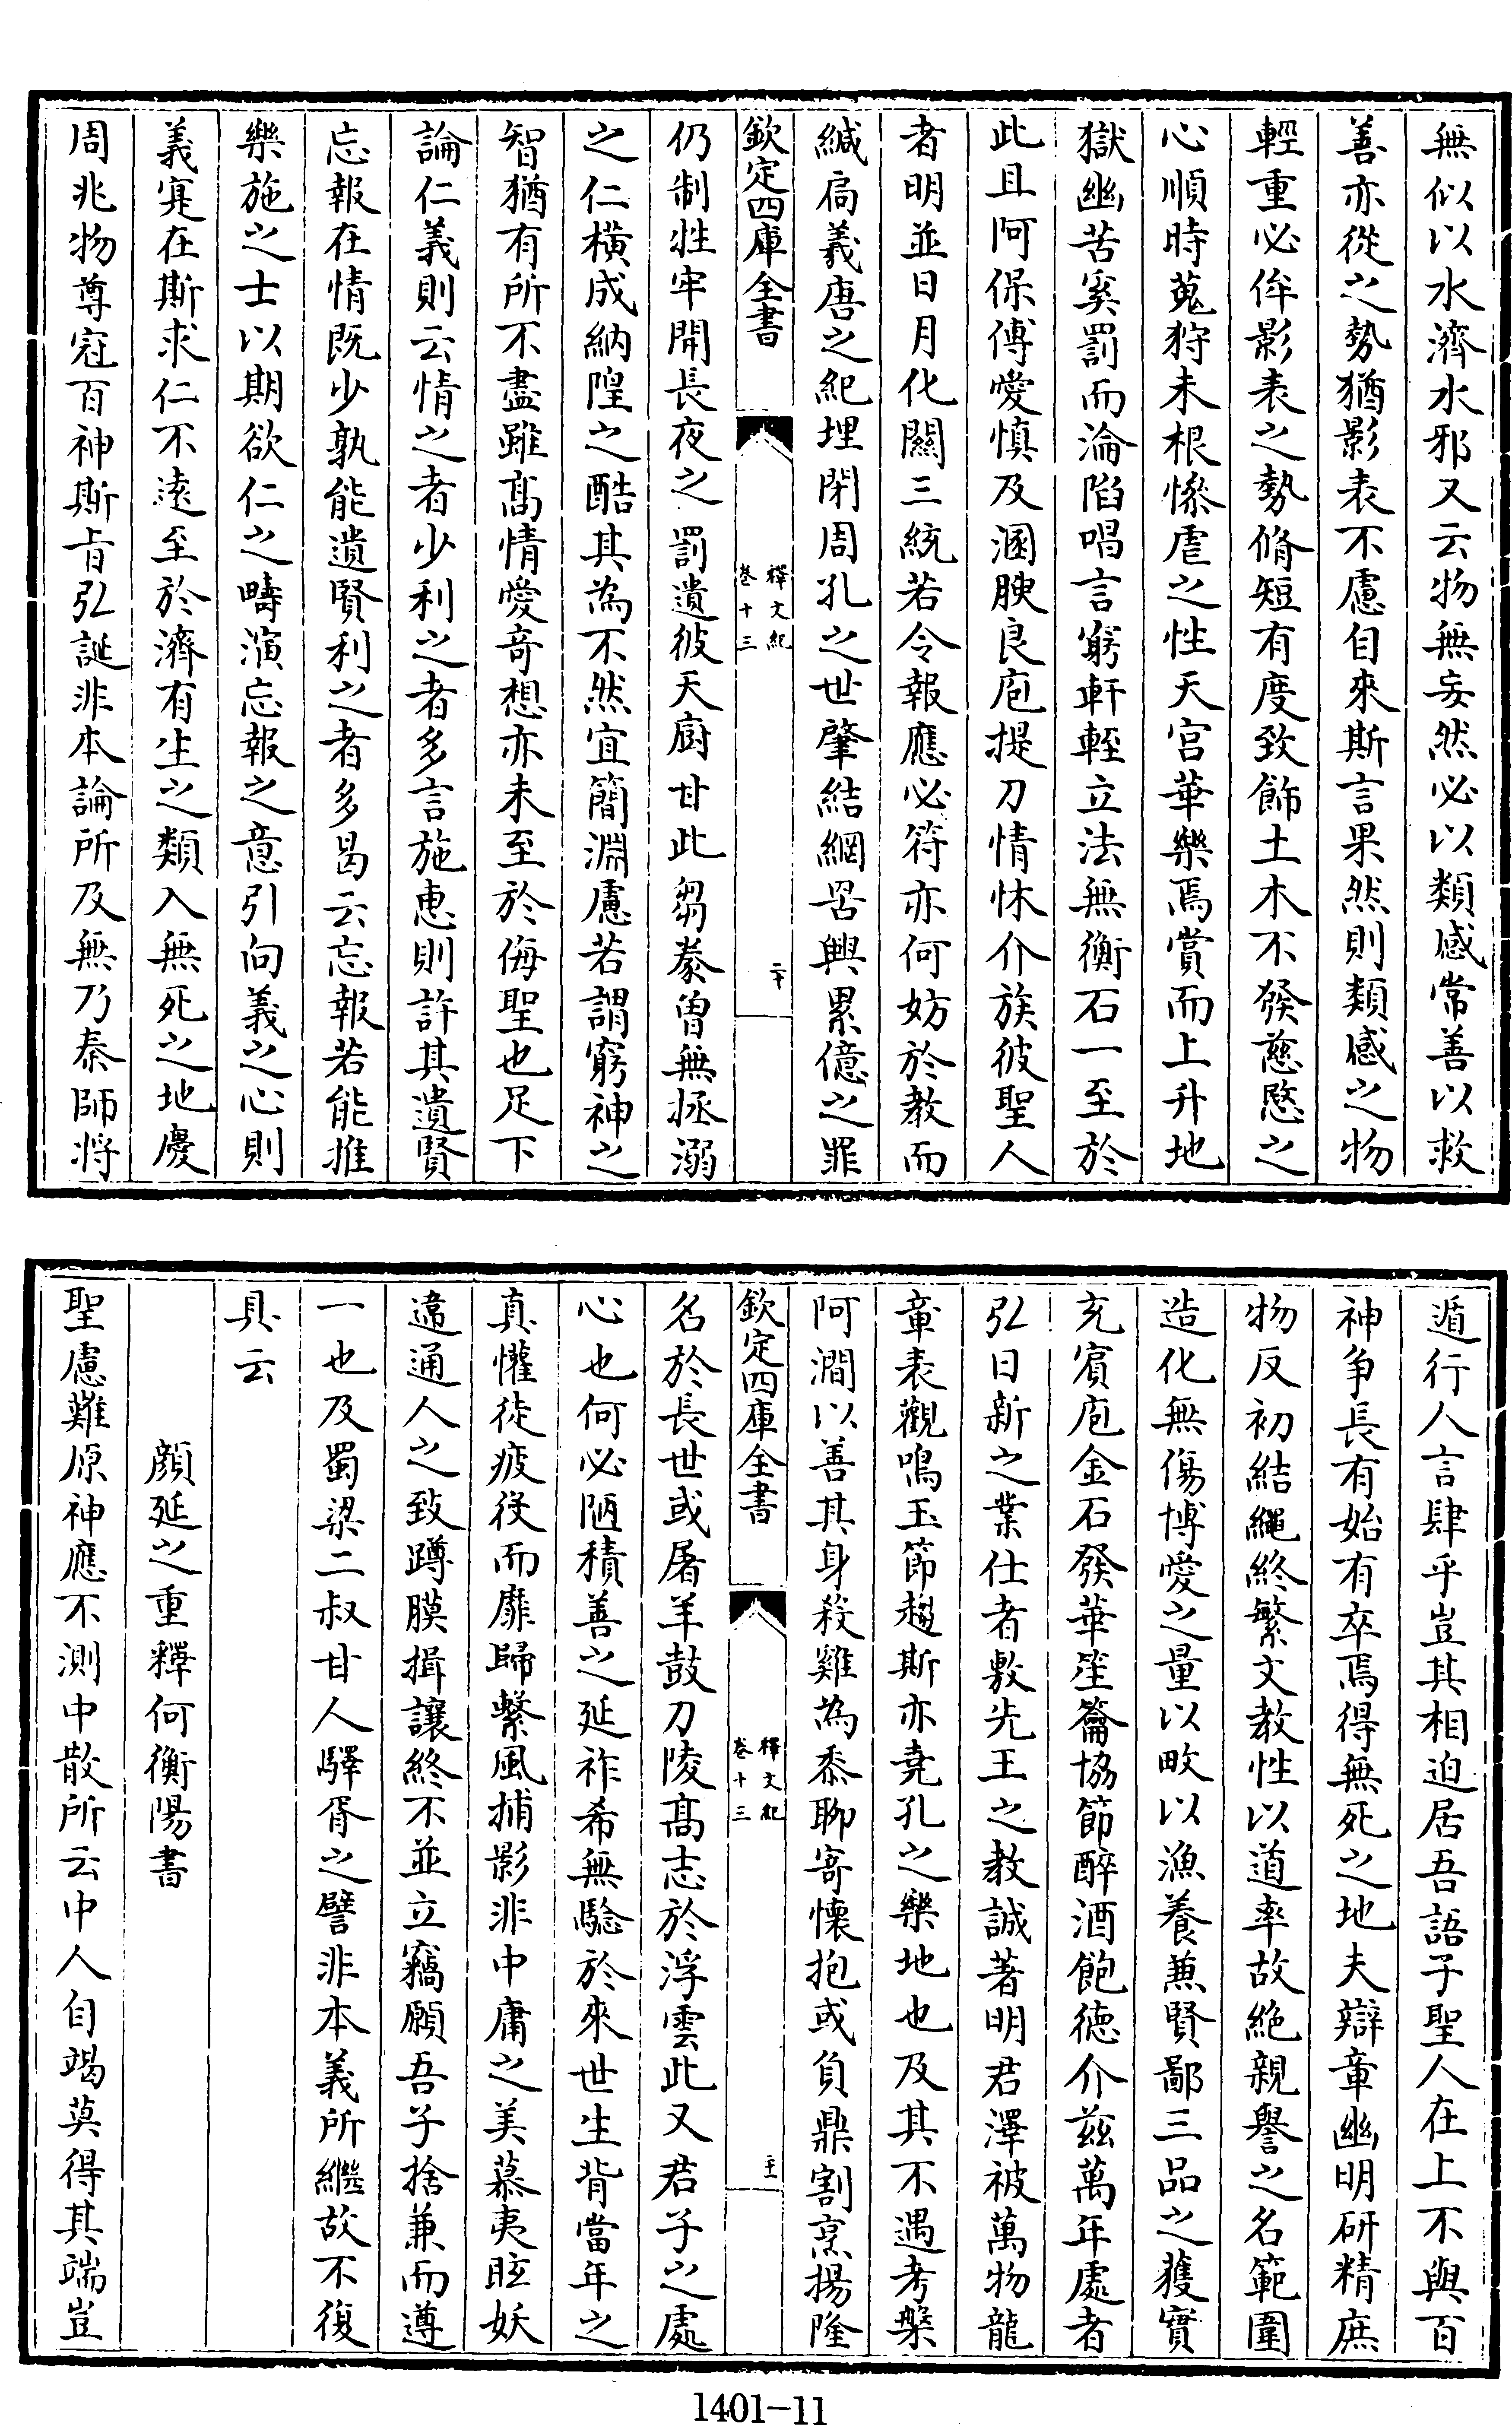 無似以水濟水邪又云物無妄然必以類感常善以救
善亦從之勢猶影表不慮自來斯言果然則類感之物
輕重必侔影表之勢脩短有度致飾土木不發慈愍之
心順時蒐狩未根慘虐之性天宫華樂焉賞而上升地
獄幽苦奚罰而淪陷唱言窮軒輊立法無衡石一至於
此且阿保傅愛慎及溷腴良庖提刀情怵介族彼聖人
者明並日月化關三統若令報應必符亦何妨於教而
緘扃羲唐之紀埋閉周孔之世肇結網罟興累億之罪
欽定四庫全書
釋文紀
卷十三
二十
仍制牲牢開長夜之罰遺彼天廚甘此芻豢曽無拯溺
之仁横成納隍之酷其為不然宜簡淵慮若謂窮神之
智猶有所不盡雖髙情愛竒想亦未至於侮聖也足下
論仁義則云情之者少利之者多言施惠則許其遺賢
忘報在情既少孰能遺賢利之者多曷云忘報若能推
樂施之士以期欲仁之疇演忘報之意引向義之心則
義寔在斯求仁不逺至於濟有生之類入無死之地慶
周兆物尊冠百神斯旨弘誕非本論所及無乃秦師將
遁行人言肆乎豈其相迫居吾語子聖人在上不與百
神爭長有始有卒焉得無死之地夫辯章幽明研精庶
物反初結繩終繁文教性以道率故絶親譽之名範圍
造化無傷博愛之量以畋以漁養兼賢鄙三品之獲實
充賔庖金石發華笙籥協節醉酒飽徳介兹萬年處者
弘日新之業仕者敷先王之教誠著明君澤被萬物龍
章表觀鳴玉節趨斯亦堯孔之樂地也及其不遇考槃
阿澗以善其身殺雞為黍聊寄懷抱或負鼎割烹揚隆
欽定四庫全書
釋文紀
卷十三
二十一
名於長世或屠羊鼓刀陵髙志於浮雲此又君子之處
心也何必陋積善之延祚希無驗於來世生背當年之
真懽徒疲役而靡歸繫風捕影非中庸之美慕夷眩妖
違通人之致蹲膜揖讓終不並立竊願吾子捨兼而遵
一也及蜀梁二叔甘人驛胥之譬非本義所繼故不復
具云
顔延之重釋何衡陽書
聖慮難原神應不測中散所云中人自竭莫得其端豈
1401-11